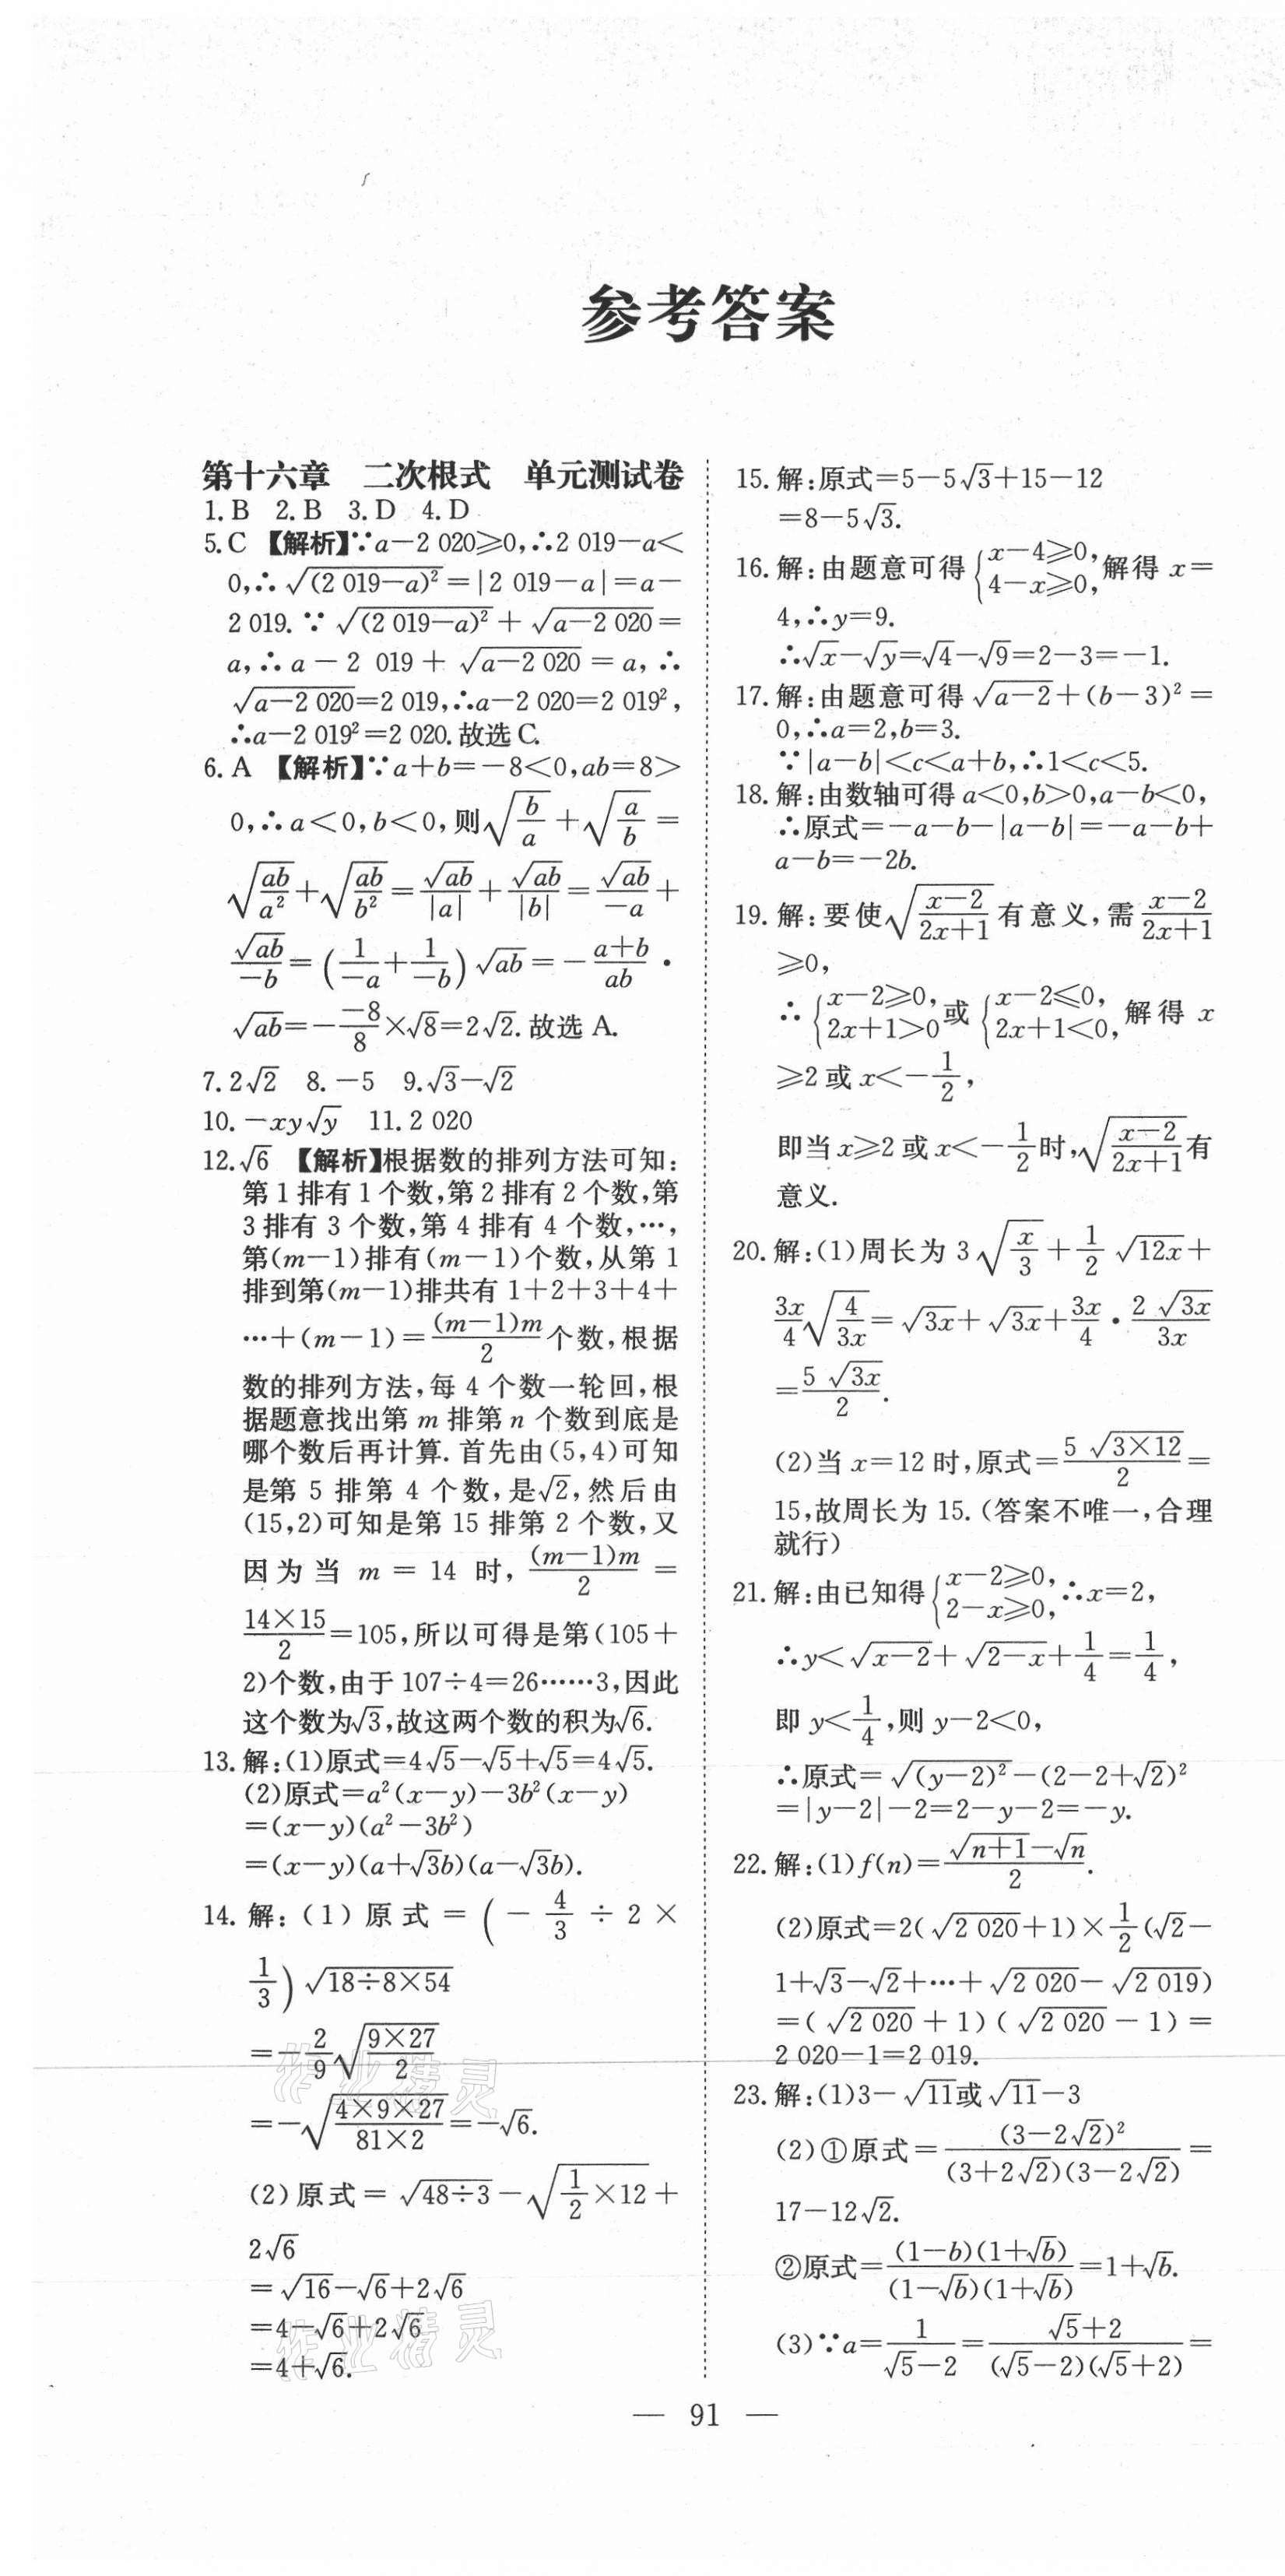 参考答案
第十六章 二次根式 单元测试卷
1.B 2.B 3.D 4.D
5.C 【解析】∵a-2 020≥0,∴2 019-a<
0,∴√((2 019-a)²)=|2 019-a|=a-
2 019.∵√((2 019-a)²)+√(a-2 020)=
a,∴a-2 019+√(a-2 020)=a,∴
√(a-2 020)=2 019,∴a-2 020=2 019²,
∴a-2 019²=2 020.故选C.
6.A 【解析】∵a+b=-8<0,ab=8>
0,∴a<0,b<0,则√(b/a)+√(a/b)=
√(ab/a²)+√(ab/b²)=√(ab)/|a|+√(ab)/|b|=√(ab)/(-a)+
√(ab)/(-b)=(1/(-a)+1/(-b))√(ab)=-(a+b)/(ab)·
√(ab)=-(-8)/8×√8=2√2.故选A.
7.2√2 8.-5 9.√3-√2
10.-xy√y 11.2 020
12.√6 【解析】根据数的排列方法可知:
第1排有1个数,第2排有2个数,第
3排有3个数,第4排有4个数,…,
第(m-1)排有(m-1)个数,从第1
排到第(m-1)排共有1+2+3+4+
…+(m-1)=(m-1)m/2个数,根据
数的排列方法,每4个数一轮回,根
据题意找出第m排第n个数到底是
哪个数后再计算.首先由(5,4)可知
是第5排第4个数,是√2,然后由
(15,2)可知是第15排第2个数,又
因为当m=14时,(m-1)m/2=
14×15/2=105,所以可得是第(105+
2)个数,由于107÷4=26……3,因此
这个数为√3,故这两个数的积为√6.
13.解:(1)原式=4√5-√5+√5=4√5.
(2)原式=a²(x-y)-3b²(x-y)
=(x-y)(a²-3b²)
=(x-y)(a+√3b)(a-√3b).
14.解:(1)原式=(-4/3÷2×
1/3)√(18÷8×54)
=-2/9√(9×27/2)
=-√(4×9×27/(81×2))=-√6.
(2)原式=√(48÷3)-√(1/2×12)+
2√6
=√16-√6+2√6
=4-√6+2√6
=4+√6.
15.解:原式=5-5√3+15-12
=8-5√3.
16.解:由题意可得{x-4≥0,4-x≥0,解得x=
4,∴y=9.
∴√x-√y=√4-√9=2-3=-1.
17.解:由题意可得√(a-2)+(b-3)²=
0,∴a=2,b=3.
∵|a-b|<c<a+b,∴1<c<5.
18.解:由数轴可得a<0,b>0,a-b<0,
∴原式=-a-b-|a-b|=-a-b+
a-b=-2b.
19.解:要使√((x-2)/(2x+1))有意义,需(x-2)/(2x+1)
≥0,
∴{x-2≥0,2x+1>0或{x-2≤0,2x+1<0,解得x
≥2或x<-1/2,
即当x≥2或x<-1/2时,√((x-2)/(2x+1))有
意义.
20.解:(1)周长为3√(x/3)+1/2√(12x)+
3x/4√(4/3x)=√(3x)+√(3x)+3x/4·2√(3x)/3x
=5√(3x)/2.
(2)当x=12时,原式=5√(3×12)/2=
15,故周长为15.(答案不唯一,合理
就行)
21.解:由已知得{x-2≥0,2-x≥0,∴x=2,
∴y<√(x-2)+√(2-x)+1/4=1/4,
即y<1/4,则y-2<0,
∴原式=√((y-2)²)-(2-2+√2)²
=|y-2|-2=2-y-2=-y.
22.解:(1)f(n)=(√(n+1)-√n)/2.
(2)原式=2(√(2 020)+1)×1/2(√2-
1+√3-√2+…+√(2 020)-√(2 019))
=(√(2 020)+1)(√(2 020)-1)=
2 020-1=2 019.
23.解:(1)3-√11或√11-3
(2)①原式=(3-2√2)²/((3+2√2)(3-2√2))=
17-12√2.
②原式=(1-b)(1+√b)/((1-√b)(1+√b))=1+√b.
(3)∵a=1/(√5-2)=(√5+2)/((√5-2)(√5+2))=
— 91 —
作业精灵
作业精灵